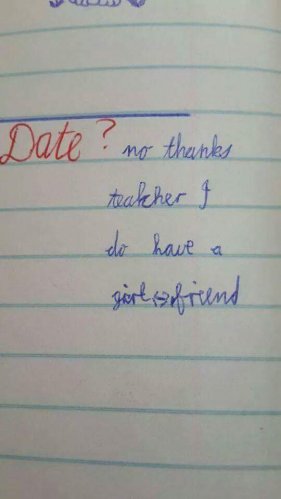 Date? no thanks
teakher I
do have a
girl<>friend